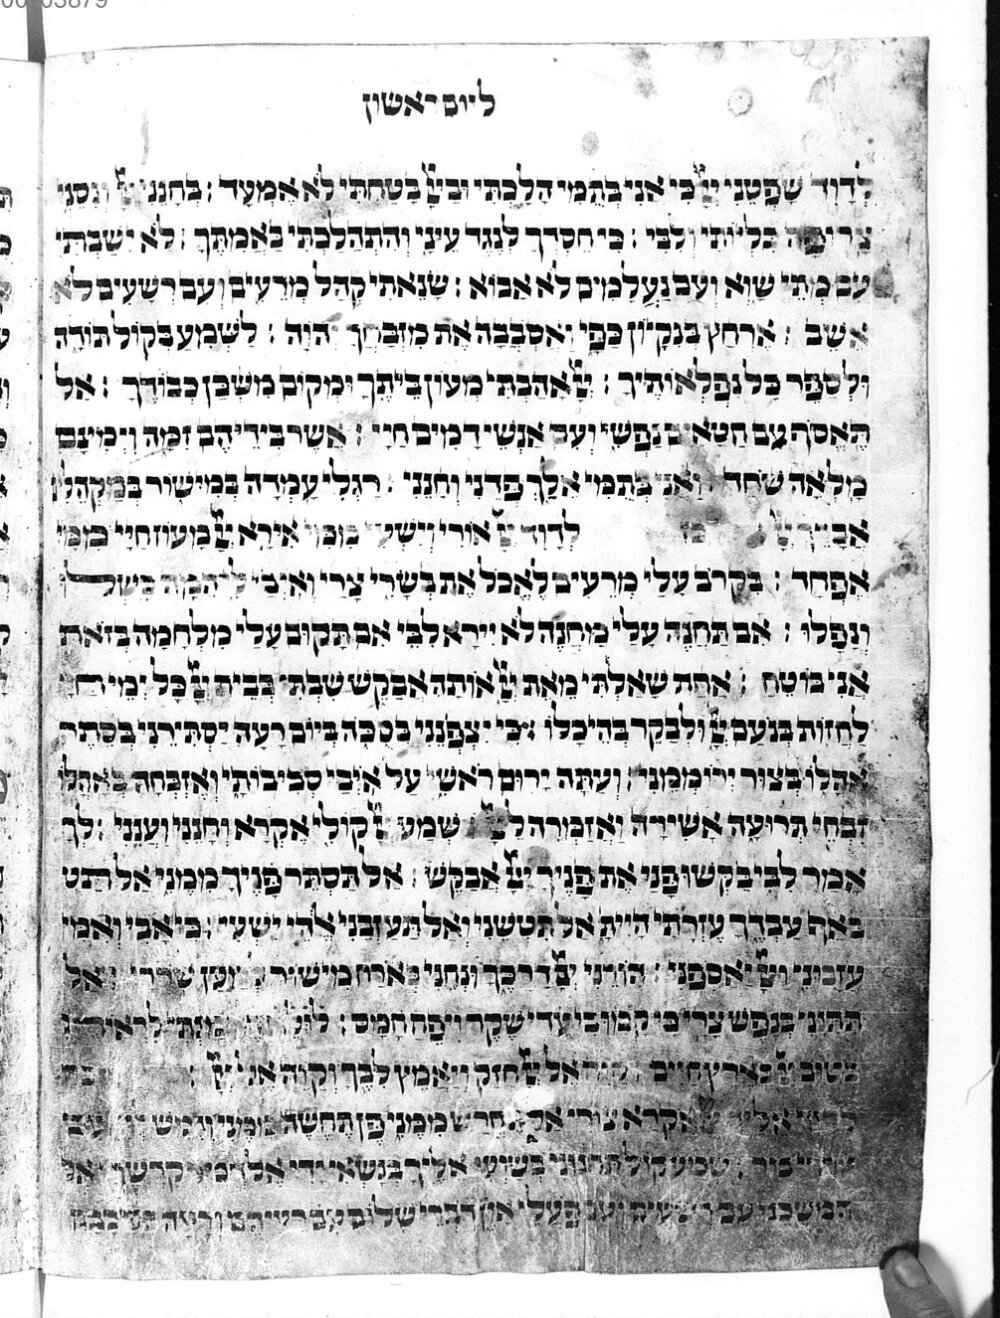 ליום ראשון
לְדָוִד שָׁפְטֵנִי יְיָ כִּי אֲנִי בְּתֻמִּי הָלַכְתִּי וּבַיְיָ בָּטַחְתִּי לֹא אֶמְעָד : בְּחָנֵנִי יְיָ וְנַסֵּנִי
צרופה כִּלְיוֹתַי וְלִבִּי : כִּי חַסְדְּךָ לְנֶגֶד עֵינָי וְהִתְהַלַּכְתִּי בַּאֲמִתֶּךָ : לֹא יָשַׁבְתִּי
עִם מְתֵי שָׁוְא וְעִם נַעֲלָמִים לֹא אָבוֹא : שָׂנֵאתִי קְהַל מְרֵעִים וְעִם רְשָׁעִים לֹא
אֵשֵׁב : אֶרְחַץ בְּנִקָּיוֹן כַּפָּי וַאֲסֹבְבָה אֶת מִזְבַּחֲךָ יהוה : לַשְׁמִעַ בְּקוֹל תּוֹדָה
וּלְסַפֵּר כָּל נִפְלְאוֹתֶיךָ : יְיָ אָהַבְתִּי מְעוֹן בֵּיתֶךָ וּמְקוֹם מִשְׁכַּן כְּבוֹדֶךָ : אַל
תֶּאֱסֹף עִם חַטָּאִים נַפְשִׁי וְעִם אַנְשֵׁי דָמִים חַיָּי : אֲשֶׁר בִּידֵיהֶם זִמָּה וִימִינָם
מָלְאָה שֹׁחַד : וַאֲנִי בְּתֻמִּי אֵלֵךְ פְּדֵנִי וְחָנֵּנִי : רַגְלִי עָמְדָה בְמִישׁוֹר בְּמַקְהֵלִי
אברך יְיָ כז לְדָוִד יְיָ אוֹרִי וְיִשְׁעִי מִמִּי אִירָא יְיָ מָעוֹז חַיַּי מִמִּי
אֶפְחָד : בִּקְרֹב עָלַי מְרֵעִים לֶאֱכֹל אֶת בְּשָׂרִי צָרַי וְאֹיְבַי לִי הֵמָּה כשלו
וְנָפָלוּ : אִם תַּחֲנֶה עָלַי מַחֲנֶה לֹא יִירָא לִבִּי אִם תָּקוּם עָלַי מִלְחָמָה בְּזֹאת
אֲנִי בוֹטֵחַ : אַחַת שָׁאַלְתִּי מֵאֵת יְיָ אוֹתָהּ אֲבַקֵּשׁ שִׁבְתִּי בְּבֵית יְיָ כָּל יְמֵי חיי
לַחֲזוֹת בְּנֹעַם יְיָ וּלְבַקֵּר בְּהֵיכָלוֹ : כִּי יִצְפְּנֵנִי בְּסֻכֹּה בְּיוֹם רָעָה יַסְתִּירֵנִי בְּסֵתֶר
אָהֳלוֹ בְּצוּר יְרוֹמְמֵנִי : וְעַתָּה יָרוּם רֹאשִׁי עַל אֹיְבַי סְבִיבוֹתַי וְאֶזְבְּחָה בְאָהֳלוֹ
זִבְחֵי תְרוּעָה אָשִׁירָה וַאֲזַמְּרָה לַיְיָ : שְׁמַע יְיָ קוֹלִי אֶקְרָא וְחָנֵּנִי וַעֲנֵנִי : לְךָ
אָמַר לִבִּי בַּקְּשׁוּ פָנָי אֶת פָּנֶיךָ יְיָ אֲבַקֵּשׁ : אַל תַּסְתֵּר פָּנֶיךָ מִמֶּנִּי אַל תַּט
בְּאַף עַבְדֶּךָ עֶזְרָתִי הָיִיתָ אַל תִּטְּשֵׁנִי וְאַל תַּעַזְבֵנִי אֱלֹהֵי יִשְׁעִי : כִּי אָבִי וְאִמִּי
עֲזָבוּנִי וַיְיָ יַאַסְפֵנִי : הוֹרֵנִי יְיָ דַּרְכֶּךָ וּנְחֵנִי בְּאֹרַח מִישׁוֹר למען שררי : אַל
תִּתְּנֵנִי בְּנֶפֶשׁ צָרָי כִּי קָמוּ בִי עֵדֵי שֶׁקֶר וִיפֵחַ חָמָס : לולא האמנתי לִרְאוֹת
בְּטוּב יְיָ בְּאֶרֶץ חַיִּים : קוה אֶל יְיָ חֲזַק וְיַאֲמֵץ לִבֶּךָ וְקַוֵּה אֶל יְיָ :
לדוד אליך יְיָ אֶקְרָא צוּרִי אַל תחרש מִמֶּנִּי פֶּן תֶּחֱשֶׁה מִמֶּנִּי ונמשלתי עם
יורדי בור : שמע קול תחנוני בְּשַׁוְּעִי אֵלֶיךָ בְּנָשְׂאִי יָדַי אֶל דביר קדשך אל
תמשכני עם רשעים ועם פֹּעֲלֵי אָוֶן דֹּבְרֵי שָׁלוֹם עִם רֵעֵיהֶם וְרָעָה בִּלְבָבָם